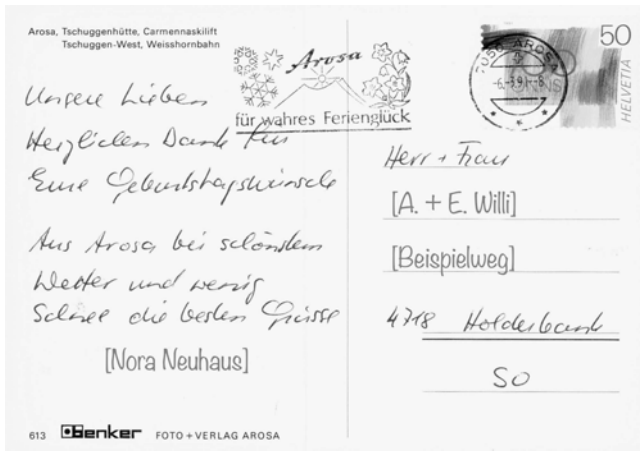 Arosa, Tschuggenhütte, Carmennaskilift
Tschuggen-West, Weisshornbahn
Arosa
für wahres Ferienglück
7050 AROSA
50
HELVETIA
Unsere Lieben
Herzlichen Dank für
Eure Geburtstagswünsche
Aus Arosa bei schönstem
Wetter und wenig
Schnee die besten Grüsse
[Nora Neuhaus]
Herr + Frau
[A. + E. Willi]
[Beispielweg]
4718 Holderbank
SO
613 benker FOTO + VERLAG AROSA